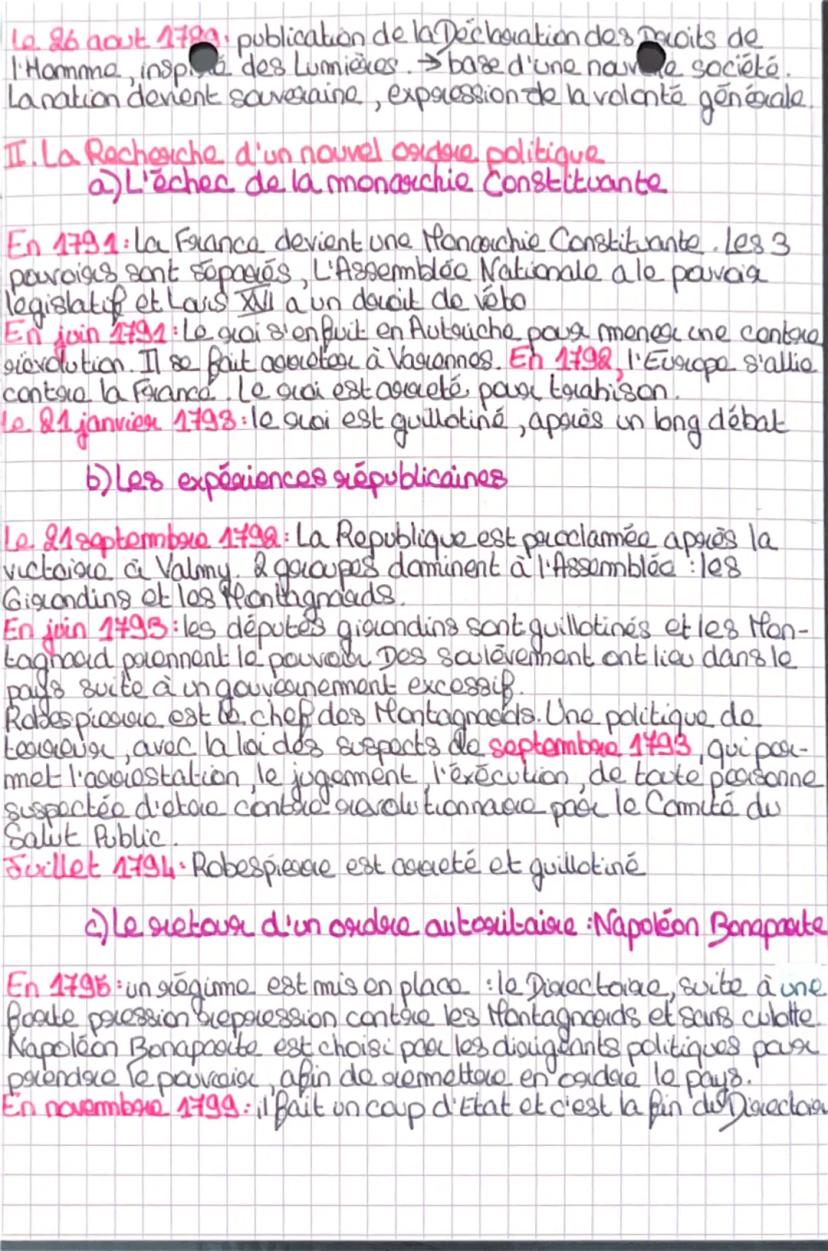 Le 26 aout 1789: publication de la Déclaration des Droits de
l'Homme, inspiré des Lumières. → base d'une nouvelle société.
La nation devient souveraine, expression de la volonté générale.
II. La Recherche d'un nouvel ordre politique
a) L'échec de la monarchie Constituante
En 1791: La France devient une Monarchie Constituante. Les 3
pouvoirs sont séparés, L'Assemblée Nationale a le pouvoir
législatif et Louis XVI a un droit de véto
En juin 1791: Le roi s'enfuit en Autriche pour mener une contre
révolution. Il se fait arrêter à Varennes. En 1792, l'Europe s'allie
contre la France. Le roi est arreté pour trahison.
Le 21 janvier 1793: le roi est guillotiné, après un long débat
b) Les expériences républicaines
Le 21 septembre 1792: La Republique est proclamée après la
victoire à Valmy. 2 groupes dominent à l'Assemblée : les
Girondins et les Montagnards.
En juin 1793: les députés girondins sont guillotinés et les Mon-
tagnard prennent le pouvoir. Des soulèvement ont lieu dans le
pays suite à un gouvernement excessif.
Robespierre est le chef des Montagnards. Une politique de
terreur, avec la loi des suspects de septembre 1793, qui per-
met l'arrestation, le jugement, l'exécution, de toute personne
suspectée d'etre contre revolutionnaire par le Comité du
Salut Public.
Juillet 1794: Robespierre est arreté et guillotiné
c) Le retour d'un ordre autoritaire : Napoléon Bonaparte
En 1795: un régime est mis en place : le Directoire, suite à une
forte pression repression contre les Montagnards et sans culotte
Napoléon Bonaparte est choisi par les dirigeants politiques pour
prendre le pouvoir, afin de remettre en ordre le pays.
En novembre 1799: il fait un coup d'Etat et c'est la fin du Directoire